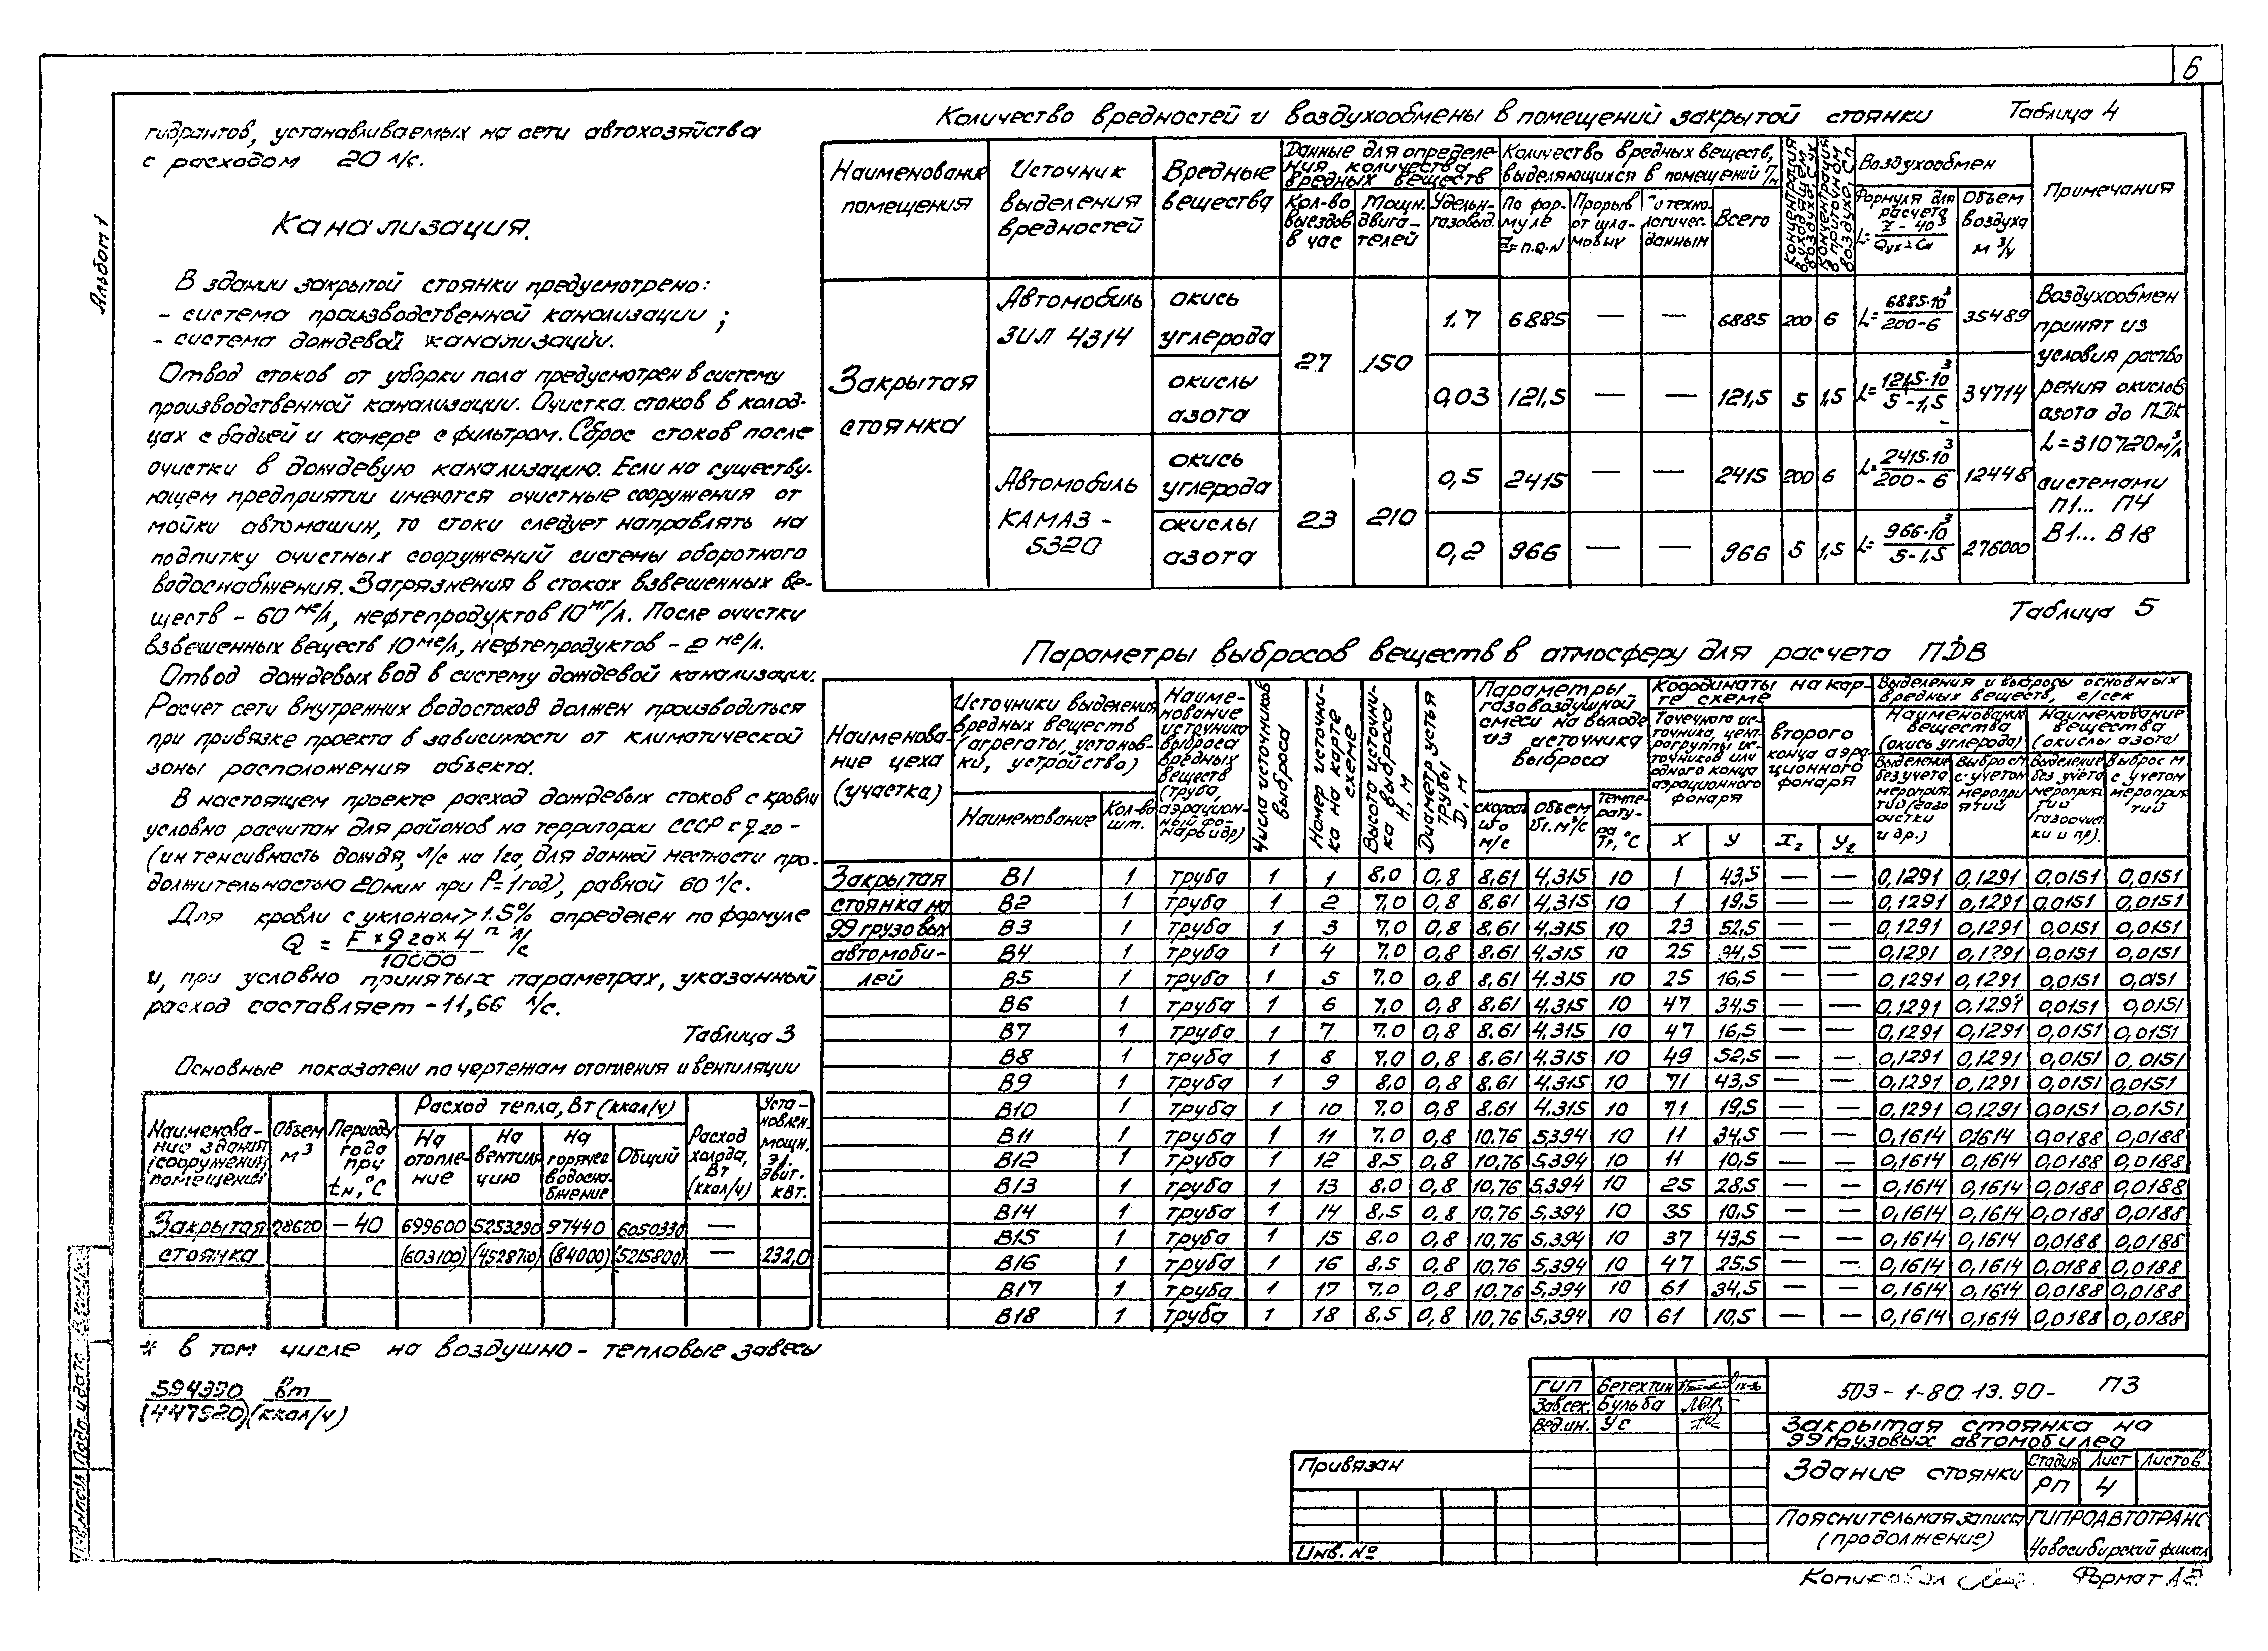 6
Альбом 1
гидрантов, устанавливаемых на сети автохозяйства
с расходом 20 л/с.
Канализация.
В здании закрытой стоянки предусмотрено:
- система производственной канализации ;
- система дождевой канализации.
Отвод стоков от уборки пола предусмотрен в систему
производственной канализации. Очистка стоков в колод-
цах с бадьей и камере с фильтром. Сброс стоков после
очистки в дождевую канализацию. Если на существу-
ющем предприятии имеются очистные сооружения от
мойки автомашин, то стоки следует направлять на
подпитку очистных сооружений системы оборотного
водоснабжения. Загрязнения в стоках взвешенных ве-
ществ - 60 мг/л, нефтепродуктов 10 мг/л. После очистки
взвешенных веществ 10 мг/л, нефтепродуктов - 2 мг/л.
Отвод дождевых вод в систему дождевой канализации.
Расчет сети внутренних водостоков должен производиться
при привязке проекта в зависимости от климатической
зоны расположения объекта.
В настоящем проекте расход дождевых стоков с кровли
условно расчитан для районов на территории СССР с q20 -
(интенсивность дождя, л/с на 1га, для данной местности про-
должительностью 20 мин при P=1год), равной 60 л/с.
Для кровли с уклоном > 1.5% определен по формуле
Q = F × q20 × 4 п / 10000 л/с
и, при условно принятых параметрах, указанный
расход составляет - 11,66 л/с.
Таблица 3
Основные показатели по чертежам отопления и вентиляции
Наименование здания (сооружения) помещения | Объем м3 | Периоды года при tн, °С | Расход тепла, Вт (ккал/ч) | Расход холода, Вт (ккал/ч) | Установлен. мощн. эл. двиг. кВт.
На отопление | На вентиляцию | На горячее водоснабжение | Общий
Закрытая 28620 -40 699600 5253290 97440 6050330 —
стоянка (603100) (4528700) (84000) (5215800) — 232,0
* в том числе на воздушно-тепловые завесы
594330 Вт
(447520) (ккал/ч)
Количество вредностей и воздухообмены в помещений закрытой стоянки Таблица 4
Наименование помещения | Источник выделения вредностей | Вредные вещества | Данные для определения количества вредных веществ | Количество вредных веществ, выделяющихся в помещений г/ч | Концентрация в уходящем воздухе, Сух | Концентрация в приточном воздухе, Сп | Воздухообмен | Примечания
Кол-во выездов в час | Мощн. двигателей | Удельн. газовыд. | По формуле Z=п.Q.N | Прорыв от шламовых | по технологичес. данным | Всего | Формула для расчета | Объем воздуха м3/ч
Закрытая стоянка
Автомобиль ЗИЛ 4314 | окись углерода | 27 | 150 | 1.7 | 6885 | — | — | 6885 | 200 | 6 | L= 6885·10³ / 200-6 | 35489
окислы азота | 0,03 | 121,5 | — | — | 121,5 | 5 | 1,5 | L= 121,5·10³ / 5-1,5 | 34714
Автомобиль КАМАЗ - 5320 | окись углерода | 23 | 210 | 0,5 | 2415 | — | — | 2415 | 200 | 6 | L= 2415·10³ / 200-6 | 12448
окислы азота | 0,2 | 966 | — | — | 966 | 5 | 1,5 | L= 966·10³ / 5-1,5 | 276000
Воздухообмен
принят из
условия раство
рения окислов
азота до ПДК
L=310720 м³/л
системами
П1... П4
В1... В18
Таблица 5
Параметры выбросов веществ в атмосферу для расчета ПДВ
Наименование цеха (участка) | Источники выделения вредных веществ (агрегаты, установки, устройство) | Наименование источника выброса вредных веществ (труба, аэрационный фонарь и др) | Число источников выброса | Номер источника на карте схеме | Высота источника выброса Н, М | Диаметр устья трубы D, М | Параметры газовоздушной смеси на выходе из источника выброса | Координаты на карте схеме | Выделения и выбросы основных вредных веществ, г/сек
Наименование | Кол-во шт. | скорость W0 м/с | Объем V1. м³/с | Температура Тг, °С | Точечного источника, центр группы источников или одного конца аэрационного фонаря | второго конца аэрационного фонаря | Наименование вещества (окись углерода) | Наименование вещества (окислы азота)
X | У | X2 | У2 | Выделение без учета мероприятий (газоочистки и др.) | Выброс м с учетом мероприятий | Выделение без учета мероприятий (газоочистки и пр). | Выброс м с учетом мероприятий
Закрытая В1 1 труба 1 1 8.0 0,8 8.61 4.315 10 1 43,5 — — 0,1291 0,1291 0,0151 0,0151
стоянка на В2 1 труба 1 2 7.0 0,8 8.61 4.315 10 1 19,5 — — 0,1291 0,1291 0,0151 0,0151
99 грузовых В3 1 труба 1 3 7.0 0,8 8.61 4.315 10 23 52,5 — — 0,1291 0,1291 0,0151 0,0151
автомоби- В4 1 труба 1 4 7.0 0,8 8.61 4.315 10 25 34,5 — — 0,1291 0,1291 0,0151 0,0151
лей В5 1 труба 1 5 7.0 0,8 8,61 4.315 10 25 16,5 — — 0,1291 0,1291 0,0151 0,0151
В6 1 труба 1 6 7.0 0,8 8.61 4.315 10 47 34,5 — — 0,1291 0,1291 0,0151 0,0151
В7 1 труба 1 7 7.0 0,8 8.61 4.315 10 47 16,5 — — 0,1291 0,1291 0,0151 0,0151
В8 1 труба 1 8 7.0 0,8 8.61 4.315 10 49 52,5 — — 0,1291 0,1291 0,0151 0,0151
В9 1 труба 1 9 8.0 0,8 8.61 4.315 10 71 43,5 — — 0,1291 0,1291 0,0151 0,0151
В10 1 труба 1 10 7.0 0,8 8.61 4.315 10 71 19,5 — — 0,1291 0,1291 0,0151 0,0151
В11 1 труба 1 11 7.0 0,8 10.76 5.394 10 11 34,5 — — 0,1614 0,1614 0,0188 0,0188
В12 1 труба 1 12 8.5 0,8 10,76 5.394 10 11 10,5 — — 0,1614 0,1614 0,0188 0,0188
В13 1 труба 1 13 8.0 0,8 10,76 5.394 10 25 28,5 — — 0,1614 0,1614 0,0188 0,0188
В14 1 труба 1 14 8,5 0,8 10.76 5.394 10 35 10,5 — — 0,1614 0,1614 0,0188 0,0188
В15 1 труба 1 15 8.0 0,8 10,76 5.394 10 37 43,5 — — 0,1614 0,1614 0,0188 0,0188
В16 1 труба 1 16 8.5 0,8 10.76 5.394 10 47 25,5 — — 0,1614 0,1614 0,0188 0,0188
В17 1 труба 1 17 7.0 0,8 10.76 5.394 10 61 34,5 — — 0,1614 0,1614 0,0188 0,0188
В18 1 труба 1 18 8.5 0,8 10,76 5.394 10 61 10,5 — — 0,1614 0,1614 0,0188 0,0188
ГИП Бетехтин
Зав.сек. Бульба
Вед.ин. Ус
503-1-80.13.90- ПЗ
Закрытая стоянка на
99 грузовых автомобилей
Здание стоянки
Стадия Лист Листов
РП 4
Пояснительная записка
(продолжение)
ГИПРОАВТОТРАНС
Новосибирский филиал
Привязан
Инв. №
Копировал
Формат А2
Инв.№подл Подп. и дата